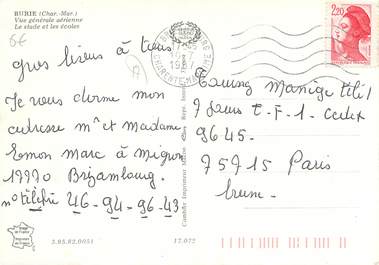 BURIE (Char.-Mar.)
Vue générale aérienne
Le stade et les écoles
6€
gros bisous à tous
Je vous donne mon
adresse mr et Madame
Emon Marc à Migron
17770 Brizambourg.
n° téléphone 46-94-96-43
1987
CHARENTE MARITIME
2,20
Tournez Manège télé
7 jours T-F-1- Cedex
9645-
75715 Paris
brune.
3.95.82.0051
17.072
Combier Imprimeur